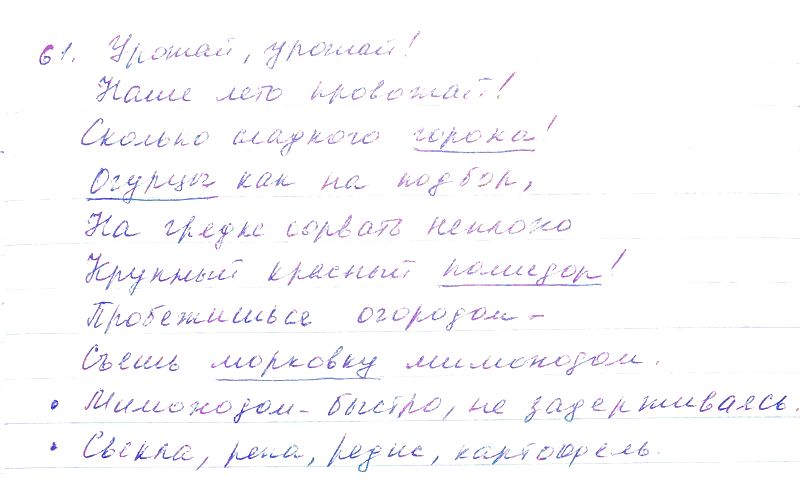 61. Урожай, урожай!
Наше лето провожай!
Сколько сладкого гороха!
Огурцы как на подбор,
На грядке сорвать неплохо
Крупный красный помидор!
Пробежишься огородом -
Съешь морковку мимоходом.
• Мимоходом - быстро, не задерживаясь.
• Свекла, репа, редис, картофель.